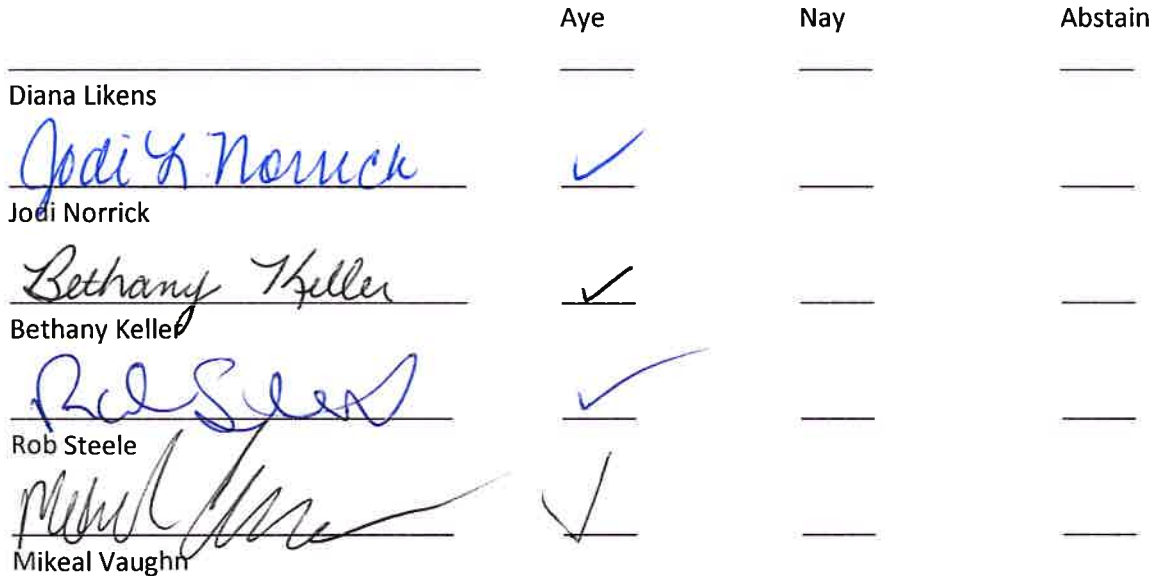 Aye Nay Abstain
Diana Likens
Jodi L Norrick
Jodi Norrick
Bethany Keller
Bethany Keller
Rob Steele
Rob Steele
Mikeal Vaughn